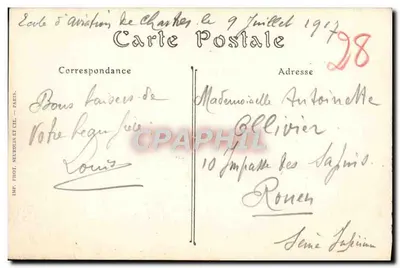 Ecole d'aviation de Chartres le 9 Juillet 1917
Carte Postale
28
Correspondance
Adresse
Bons baisers de
Votre beau frère
Louis
Mademoiselle Antoinette
Ollivier
10 Impasse des Sapins
Rouen
Seine Inférieure
CPARAMA